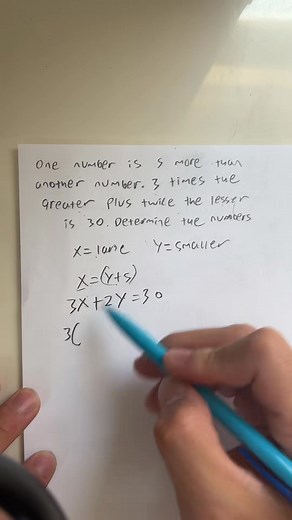 One number is 5 more than
another number. 3 times the
greater plus twice the lesser
is 30. Determine the numbers
X = large Y = smaller
X = (Y+5)
3X + 2Y = 30
3(